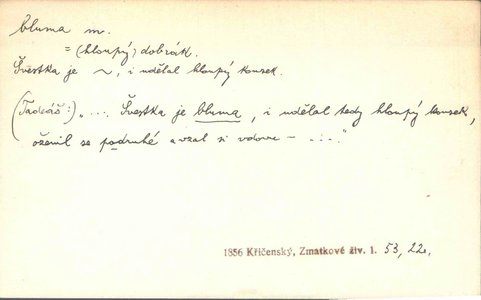 bluma m.
= (hloupý) dobrák.
Švestka je ~, i udělal hloupý kousek.
(Tadeáš:) „... Švestka je bluma, i udělal tedy hloupý kousek,
oženil se podruhé a vzal si vdovu – ...."
1856 Křičenský, Zmatkové živ. 1. 53, 22.